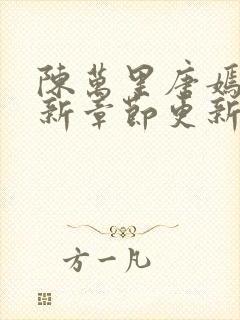 陳萬里唐嫣
新章節更新
方一凡